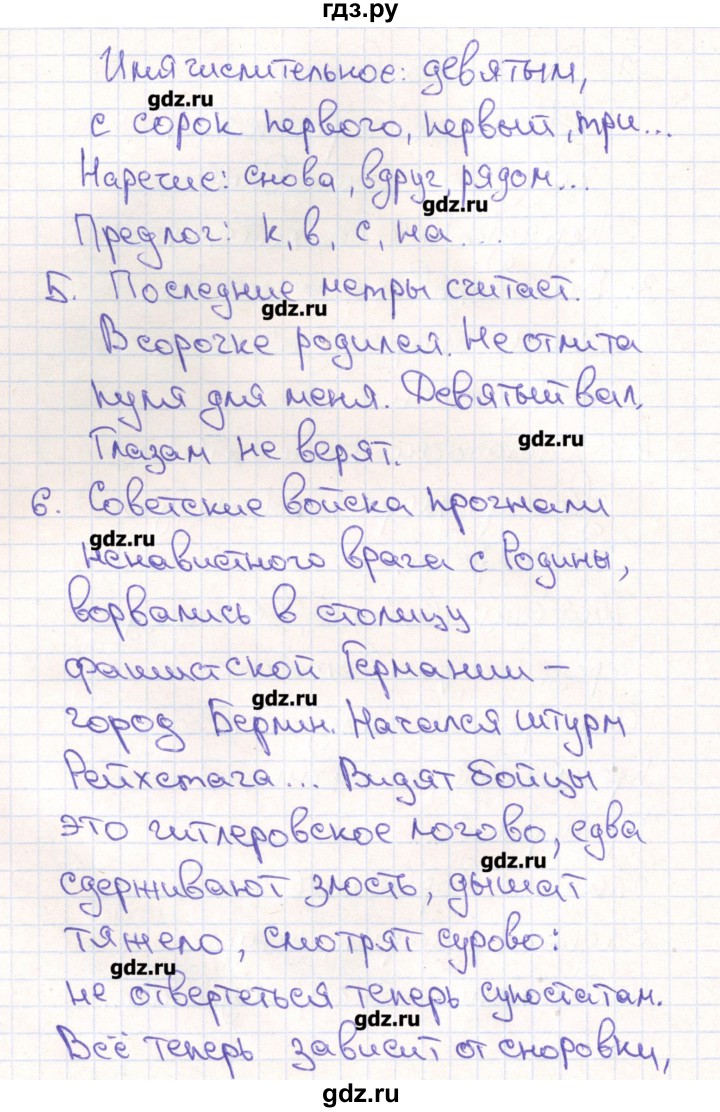 гдз.ру
Имя числительное: девятым,
gdz.ru
с сорок первого, первый, три...
Наречие: снова, вдруг, рядом...
gdz.ru
Предлог: к, в, с, на...
5. Последние метры считает.
gdz.ru
В сорочке родился. Не отлита
пуля для меня. Девятый вал.
gdz.ru
Глазам не верят.
6. Советские войска прогнали
gdz.ru
ненавистного врага с Родины,
ворвались в столицу
фашистской Германии –
gdz.ru
город Берлин. Начался штурм
Рейхстага... Видят бойцы
это гитлеровское логово, едва
gdz.ru
сдерживают злость, дышат
тяжело, смотрят сурово:
gdz.ru
не отвертеться теперь супостатам.
gdz.ru
Всё теперь зависит от сноровки,
gdz.ru